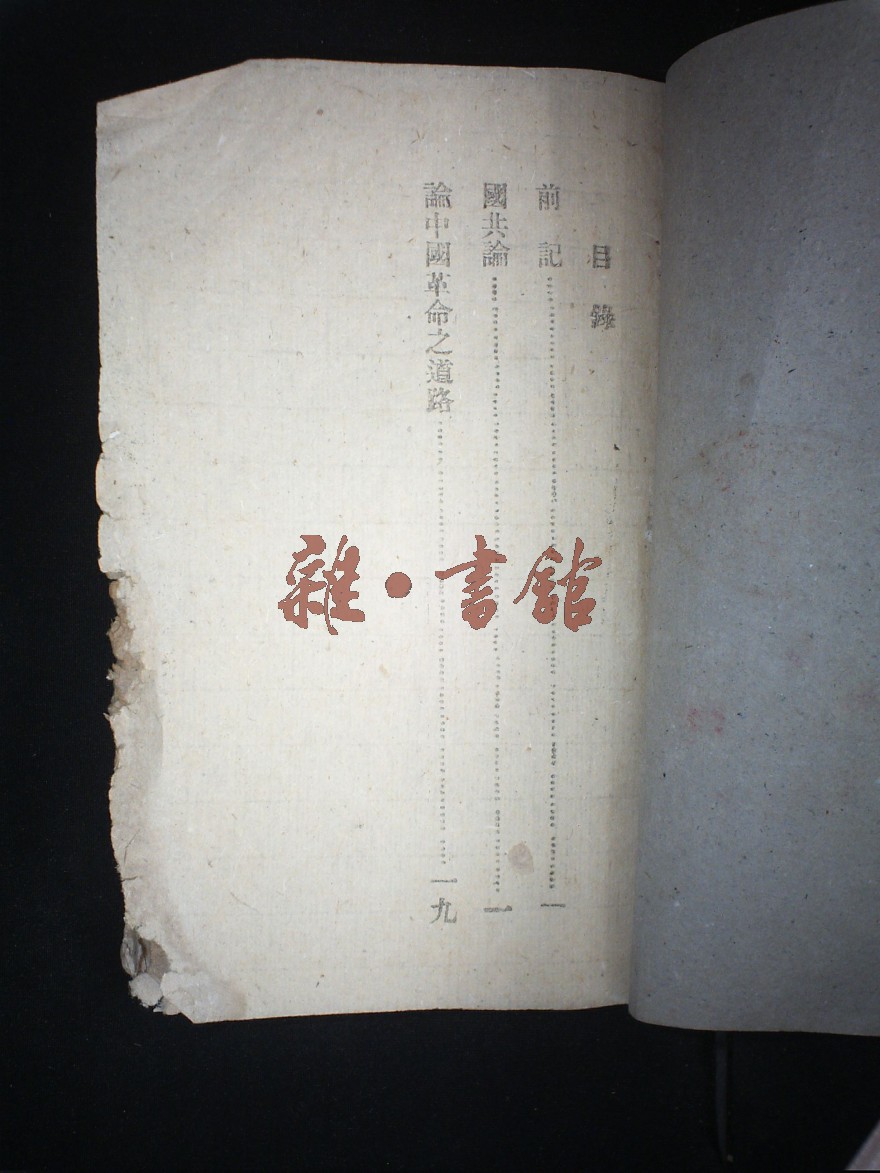 目錄
前記 一
國共論 一
論中國革命之道路 一九
雜·書館